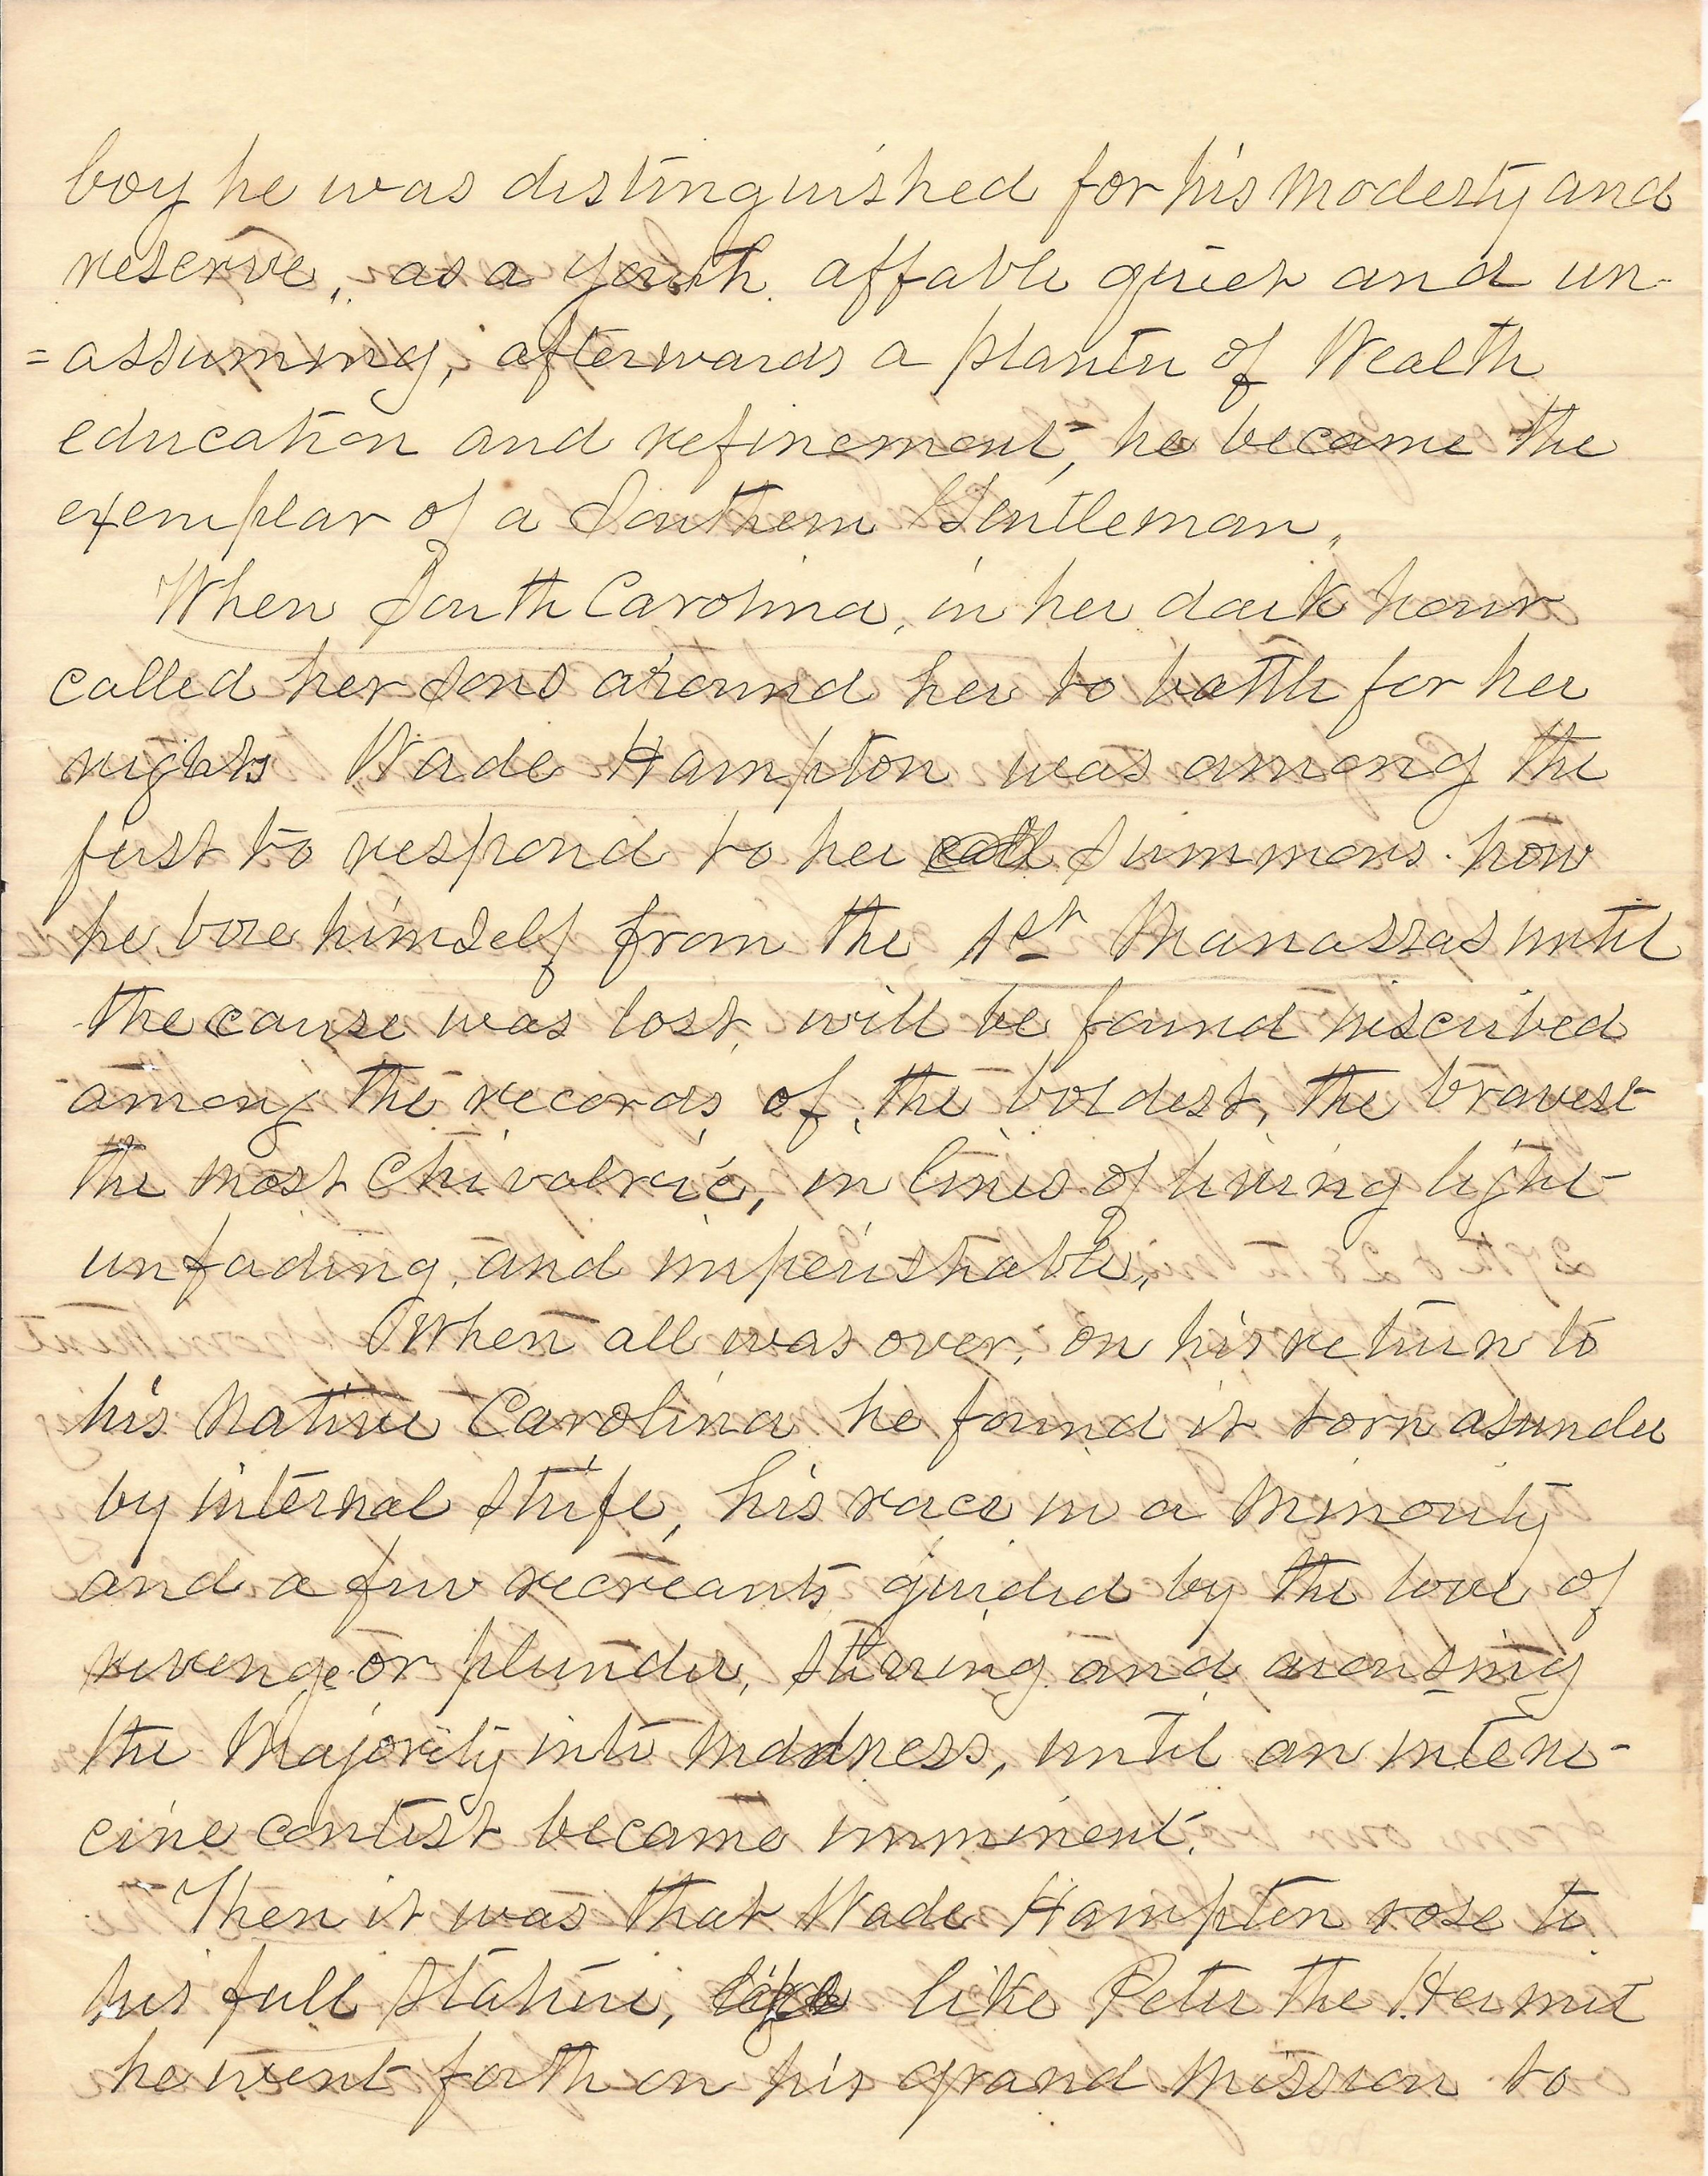 boy he was distinguished for his modesty and
reserve, as a youth affable quiet and un-
=assuming, afterwards a planter of Wealth
education and refinement, he became the
exemplar of a Southern Gentleman,
When South Carolina, in her dark hour
called her sons around her to battle for her
rights Wade Hampton was among the
first to respond to her call Summons. how
he bore himself from the 1st Manassas until
the cause was lost, will be found inscribed
among the records of the boldest, the bravest
the most Chivalric, in lines of living light
unfading, and imperishable,
When all was over, on his return to
his Native Carolina he found it torn asunder
by internal strife, his race in a Minority
and a few recreants guided by the love of
revenge or plunder, stirring and arousing
the Majority into madness, until an interne-
cine contest became imminent.
Then it was that Wade Hampton rose to
his full stature, like Peter the Hermit
he went forth on his grand Mission to